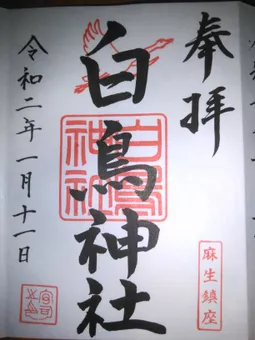 奉拝
麻生鎮座
白鳥神社
白鳥神社
令和二年一月十一日